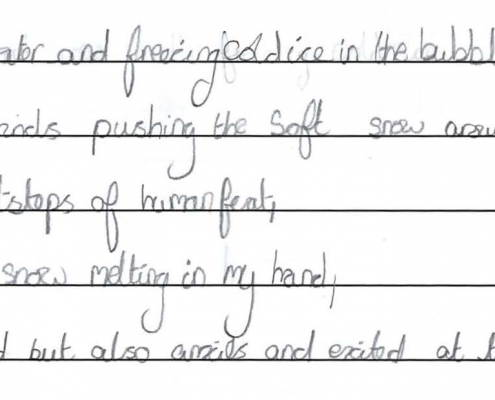 and freezing cold ice in the bubbl
pushing the soft snow arou
stops of human feat,
snow melting in my hand,
but also anxies and excited at t